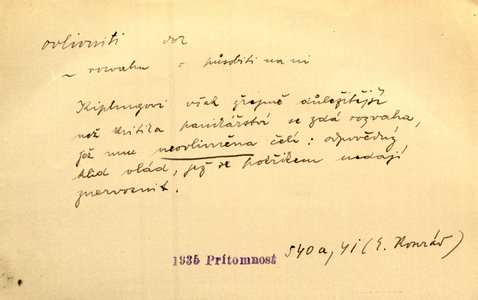 ovlivniti dok
~ rozvahu = působiti na ni
Kiplingovi však zřejmě důležitější
než kritika panikářství se zdá rozvaha,
již mu neovlivněna čelí: odpovědný
klid vlád, jež se pokřikem nedají
znervosnit.
1935 Přítomnost 540a, 41 (E. Konrád)